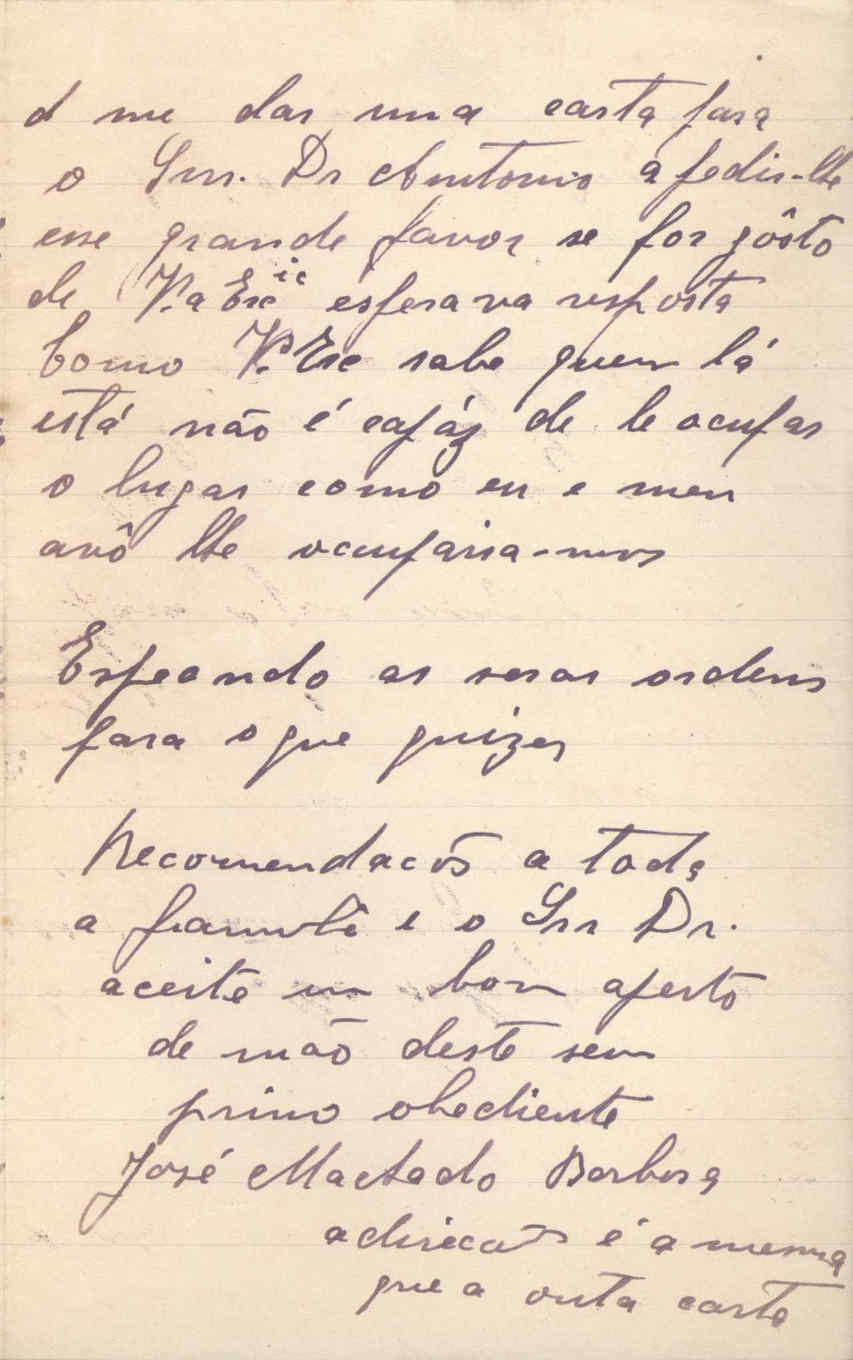 d me dar uma carta para
o Snr. Dr Amtonio a pedir-lhe
esse grande favor se for gôsto
de V.a Exc esperava resposta
Como V. Exc sabe quem lá
está não é capáz de le ocupar
o lugar como eu e meu
avô lhe ocuparia-mos
Espeando as suas ordens
para o que quizer
Recomendacõs a toda
a familê e o Snr Dr.
aceite um bom aperto
de mão deste seu
primo obediente
José Machado Barbosa
a direcão é a mesma
que a outa carta